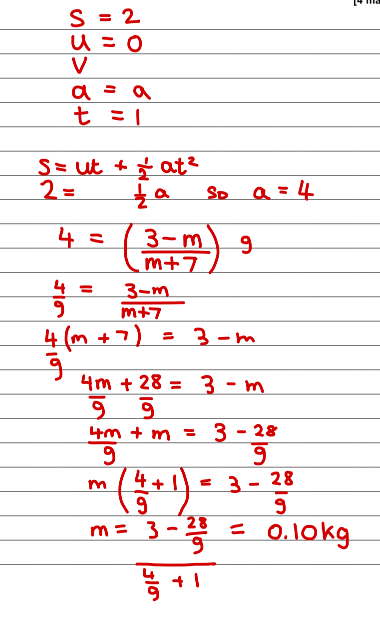 [4 ma
s = 2
u = 0
v
a = a
t = 1
s = ut + ½ at²
2 = ½ a so a = 4
4 = ((3-m)/(m+7)) g
4/g = (3-m)/(m+7)
4/g (m + 7) = 3 - m
4m/g + 28/g = 3 - m
4m/g + m = 3 - 28/g
m (4/g + 1) = 3 - 28/g
m = (3 - 28/g)/(4/g + 1) = 0.10kg